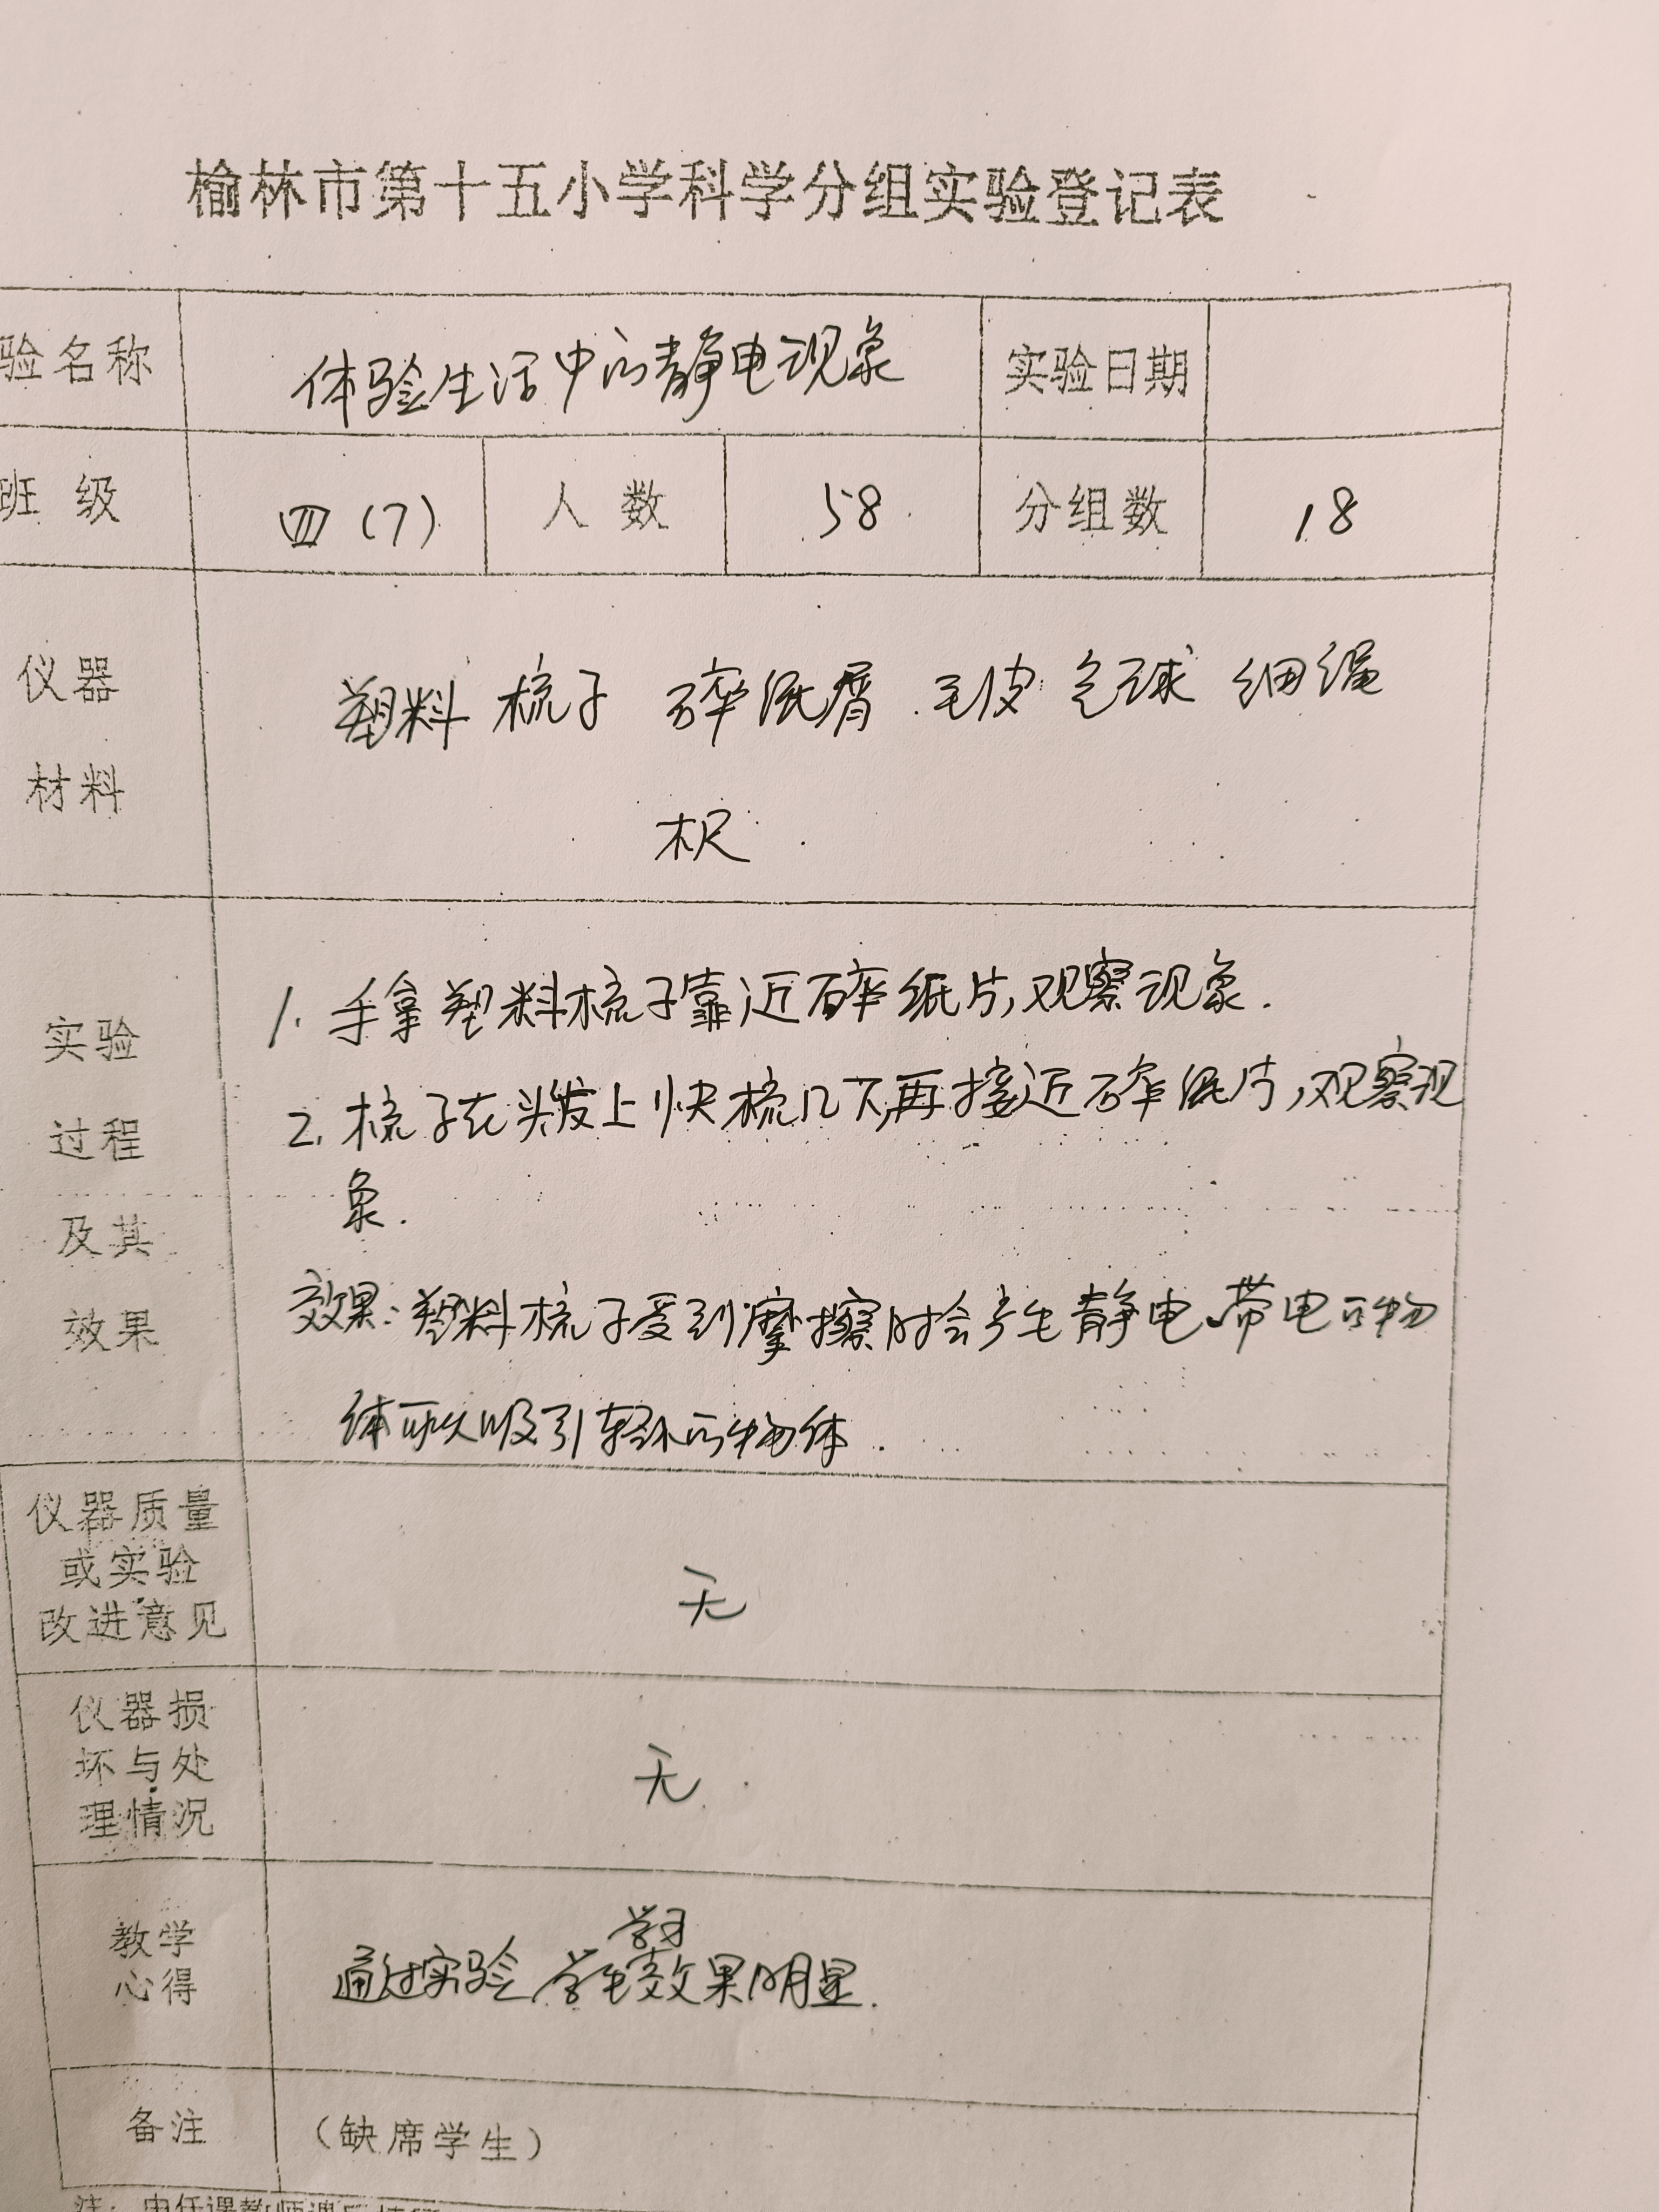 榆林市第十五小学科学分组实验登记表
验名称 体验生活中的静电现象 实验日期
班 级 四(7) 人 数 58 分组数 18
仪器
材料
塑料 梳子 碎纸屑 毛皮 气球 细绳
木尺
实验
过程
及其
效果
1. 手拿塑料梳子靠近碎纸片,观察现象.
2. 梳子在头发上快梳几下,再接近碎纸片,观察现
象.
效果:塑料梳子受到摩擦时会产生静电、带电的物
体可以吸引轻小的物体.
仪器质量
或实验
改进意见
无
仪器损
坏与处
理情况
无
教学
心得
学习
通过实验 学生效果明显.
备注 (缺席学生)
注:由任课教师课后填写